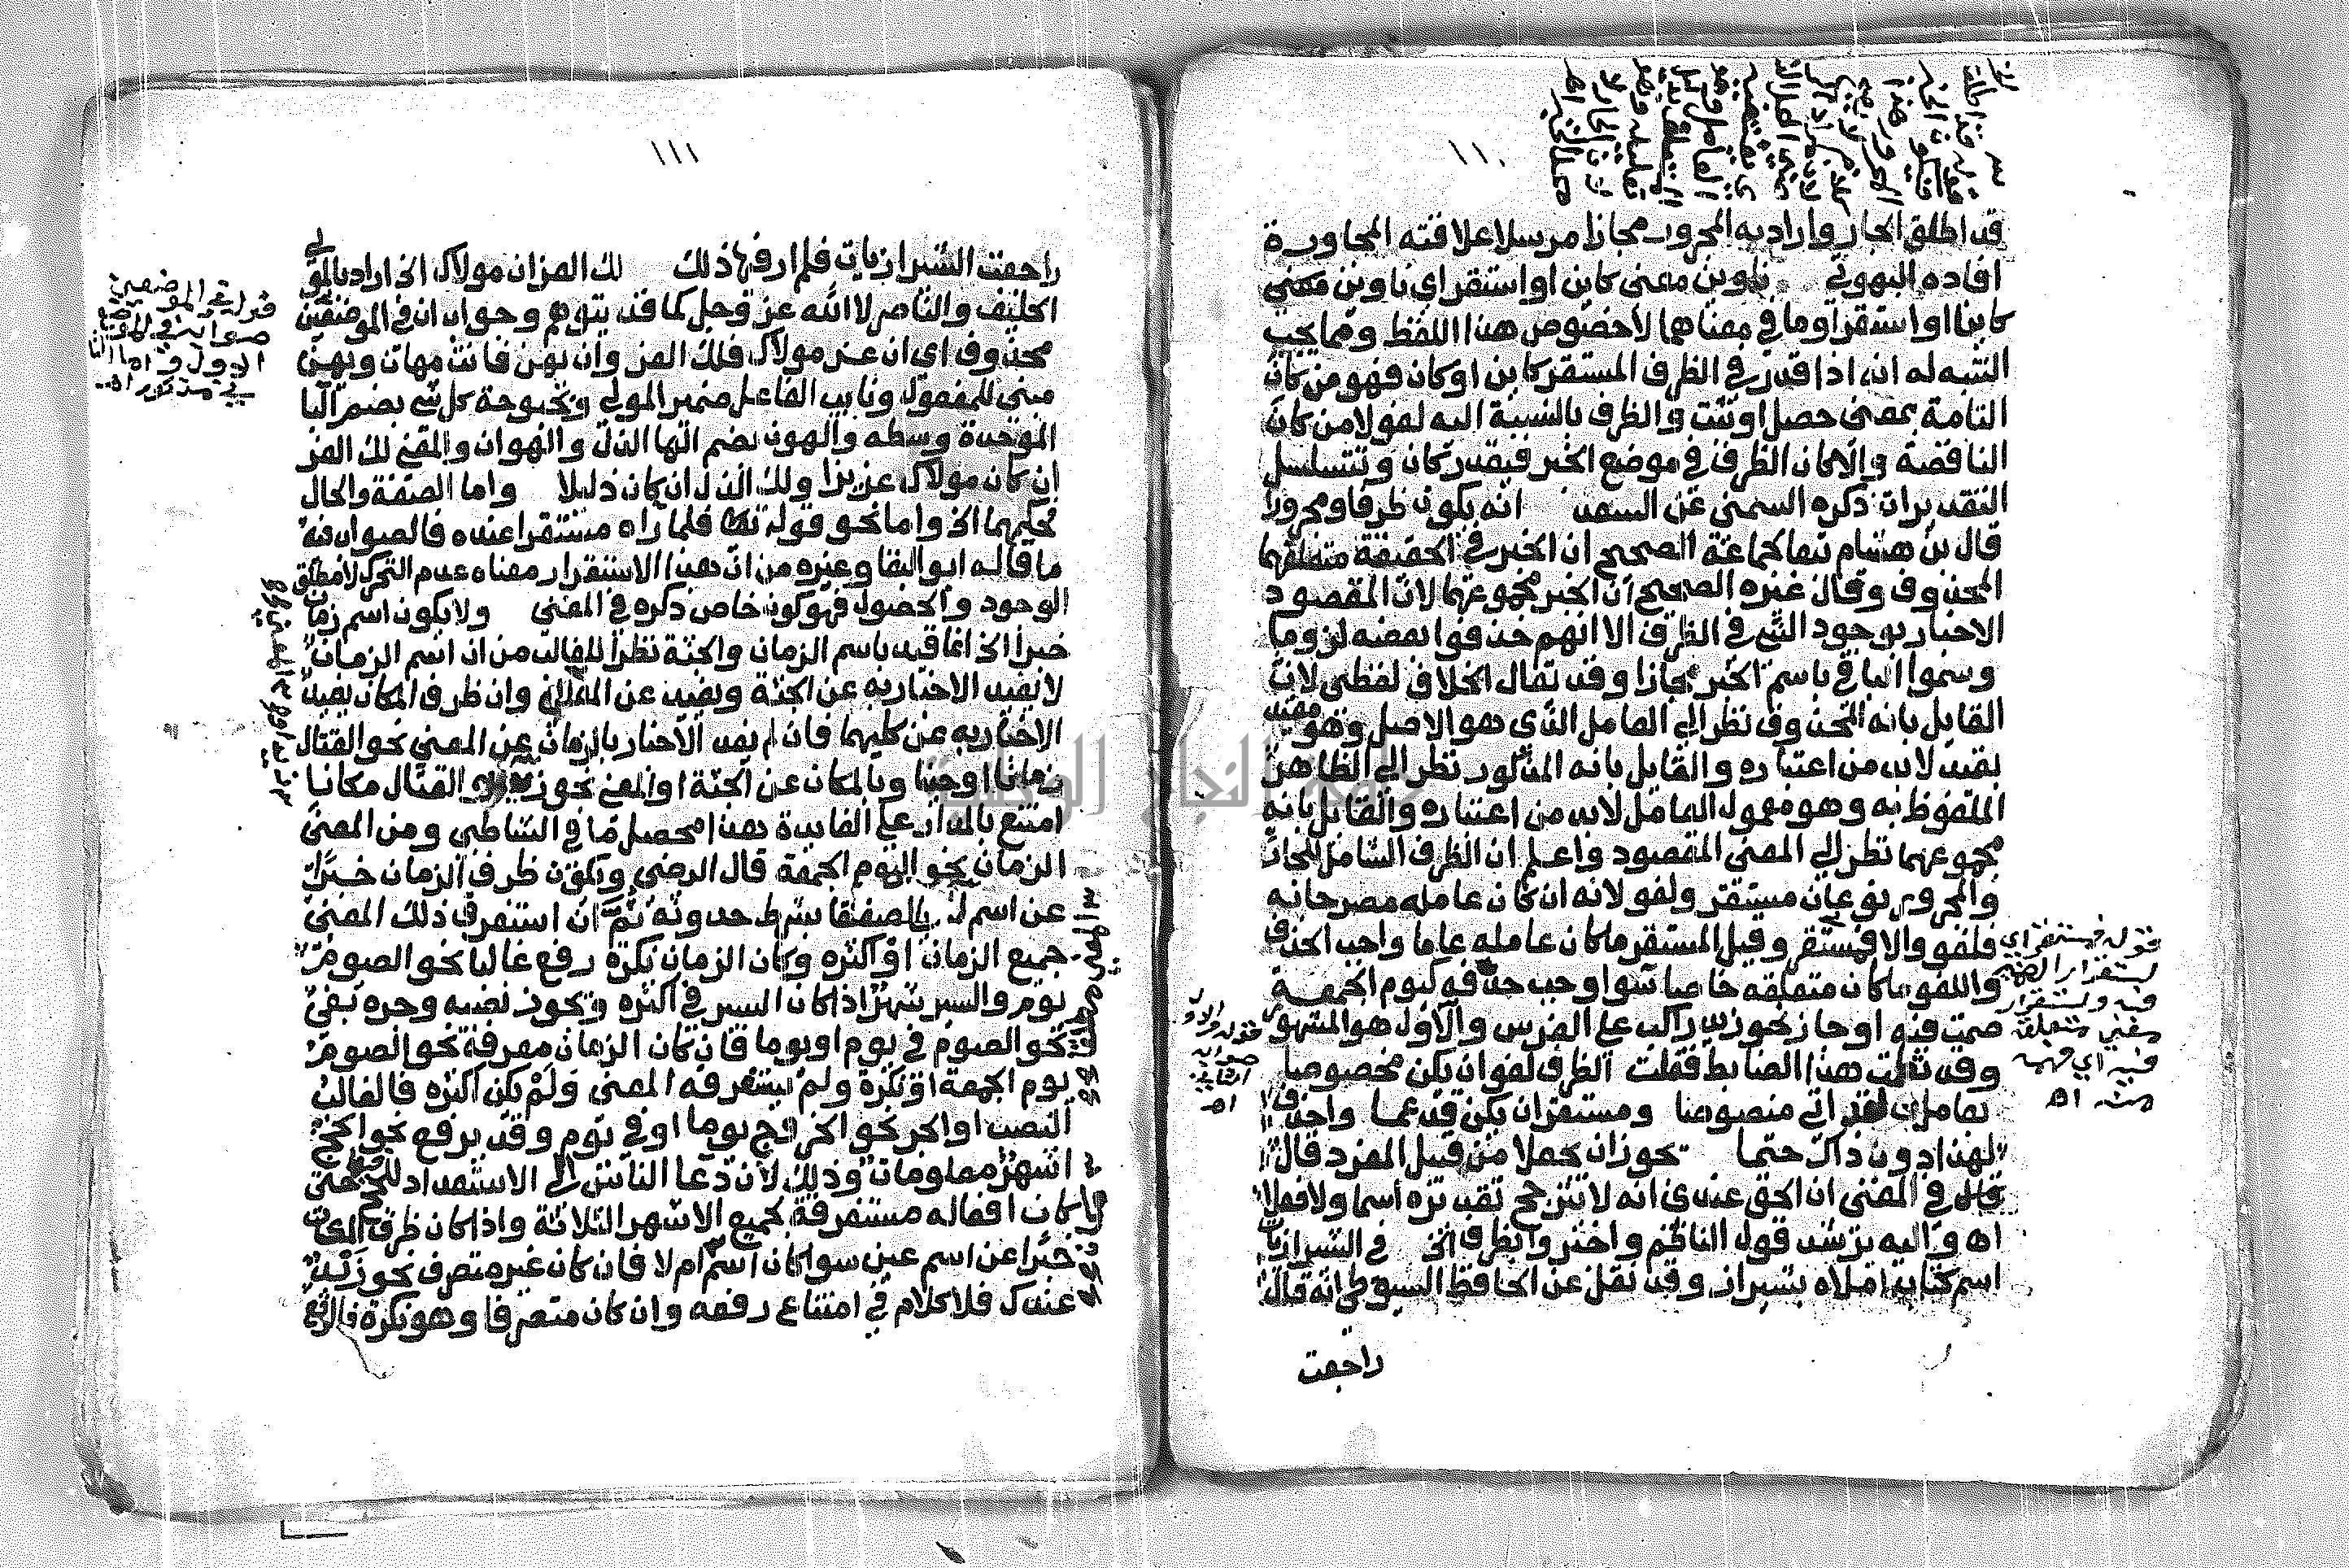 ١١٠
قد اطلق الجار واراد به المجرور مجازا مرسلا علاقته المجاورة
افاده البهوتي ناوين معنى كاين او استقر اي ناوين معنى
كاينا او استقر او ما في معناهما لاخصوص هذا اللفظ ومما يجب
التنبه له انه اذا قدر في الظرف المستقر كاين او كان فهو من كان
التامة بمعنى حصل او ثبت والظرف بالنسبة اليه لغو لا من كان
الناقصة والا كان الظرف في موضع الخبر فيقدر كان وتتسلسل
التقديرات ذكره الشمني عن السعد انه يكون ظرفا ومجرورا
قال بن هشام تبعا لجماعة الصحيح ان الخبر في الحقيقة متعلقهما
المحذوف وقال غيره الصحيح ان الخبر مجموعهما لان المقصود
الاخبار بوجود الشي في الظرف الا انهم حذفوا بعضه لزوما
وسموا الباقي باسم الخبر مجازا وقد يقال الخلاف لفظي لان
القايل بانه المحذوف نظر الي العامل الذي هو الاصل وهو مقيد
بقيد لابد من اعتباره والقايل بانه المذكور نظر الي الظاهر
الملفوظ به وهو معمول لعامل لابد من اعتباره والقايل بانه
مجموعهما نظر الي المعنى المقصود واعلم ان الظرف الشامل للجار
والمجرور نوعان مستقر ولغو لانه ان كان عامله مصرحا به
فلغو والا فمستقر وقيل المستقر ما كان عامله عاما واجب الحذف
واللغو ما كان متعلقه خاصا سوا وجب حذفه كيوم الجمعة
صمت فيه او جاز نحو زيد راكب علي الفرس والاول هو المشهور
وقد هذا الضابط فقلت الظرف لغو ان يكن مخصوصا
عامله اتي منصوصا ومستقر ان يكن قد عما واحذف
لهذا دون ذاك حتما تجوز ان تجعلا من قبيل المفرد قال
قال في المغنى ان الحق عندي انه لا يترجح تقديره اسما ولا فعلا
اه واليه يرشد قول الناظم واخبروا بظرف الخ في الشيرازيات
اسم كتاب املاه بشيراز وقد نقل عن الحافظ السيوطي انه قال
راجعت
قوله فمستقر اي
لاستقرار الضمير
فيه واستقرار
معنى متعلقه
فيه اي فهمه
منه اه
١١١
راجعت الشيرازيات فلم ار فيها ذلك لك العز ان مولاك الخ اراد بالمولي
الحليف والناصر لا الله عز وجل كما قد يتوهم وجواب ان في الموضعين
محذوف اي ان عز مولاك فلك العز وان يهن فانت مهان ويهن
مبني للمفعول ونايب الفاعل ضمير المولي وبحبوحة كل شي بضم البا
الموحدة وسطه والهون بضم الها الذل والهوان والمعني لك العز
ان كان مولاك عزيزا ولك الذل ان كان ذليلا واما الصفة والحال
فحكمهما الخ واما نحو قوله تعالى فلما راه مستقرا عنده فالصواب فيه
ما قاله ابو البقا وغيره من ان هذا الاستقرار معناه عدم التحرك لا مطلق
الوجود والحصول فهو كون خاص ذكره في المغنى ولا يكون اسم زمان
خبرا الخ انما قيد باسم الزمان والجثة نظرا للغالب من ان اسم الزمان
لا يفيد الاخبار به عن الجثة ويفيد عن المعاني وان ظرف المكان يفيد
الاخبار به عن كليهما فان لم يفد الاخبار بالزمان عن المعني نحو القتال
زمانا او حينا وبالمكان عن الجثة او المعني نحو زيد او القتال مكانا
امتنع فالمدار علي الفايدة هذا محصل ما في الشاطبي ومن المعنى
الزمان نحو اليوم الجمعة قال الرضي ويكون ظرف الزمان خبرا
عن اسم بشرط حدوثه ثم ان استغرق ذلك المعنى
جميع الزمان او اكثره وكان الزمان نكرة رفع غالبا نحو الصوم
يوم والسير شهر اذا كان السير في اكثره ويجوز نصبه وجره بفي
نحو الصوم في يوم او يوما فان كان الزمان معرفة نحو الصوم
يوم الجمعة او نكرة ولم يستغرقه المعنى ولم يكن اكثره فالغالب
النصب او الجر نحو الخروج يوما او في يوم وقد يرفع نحو الحج
اشهر معلومات وذلك لان دعا الناس الي الاستعداد للحج حتى
كان افعاله مستغرقة لجميع الاشهر الثلاثة واذا كان ظرف المكان
خبرا عن اسم عين سوا كان اسم ام لا فان كان غير متصرف نحو زيد
عندك فلا كلام في امتناع رفعه وان كان متصرفا وهو نكرة فالرفع